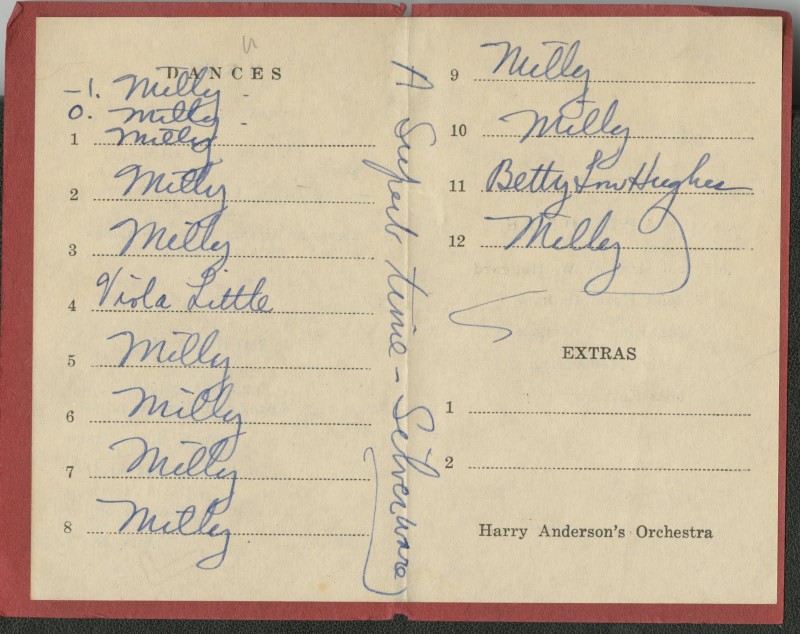 DANCES
-1. Milly -
0. Milly -
1 Milly
2 Milly
3 Milly
4 Viola Little
5 Milly
6 Milly
7 Milly
8 Milly
A Superb time - Silverware
9 Milly
10 Milly
11 Betty Lou Hughes
12 Milly
EXTRAS
1
2
Harry Anderson's Orchestra